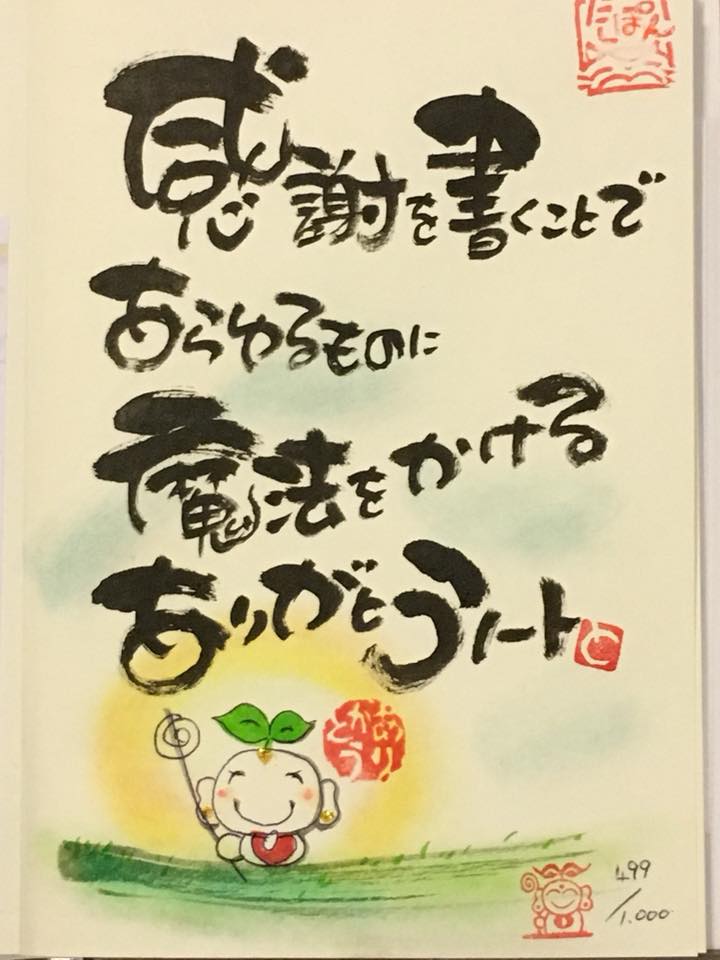 にっぽん
感謝を書くことで
あらゆるものに
魔法をかける
ありがとうノート
と
ありがとう
499/1.000